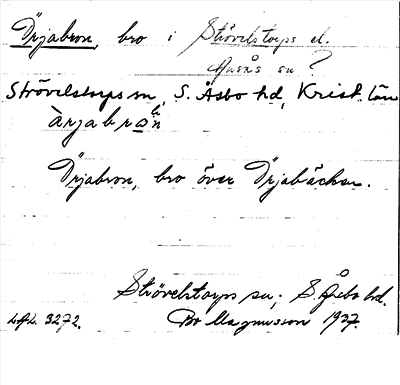 Örjabron, bro i Strövelstorps el.
Ausås sn?
Strövelstorps sn, S. Åsbo hd, Krist. län
Örjabron, bro över Örjabäcken.
Strövelstorps sn; S. Åsbo hd.
3272. Bo Magnusson 1937.